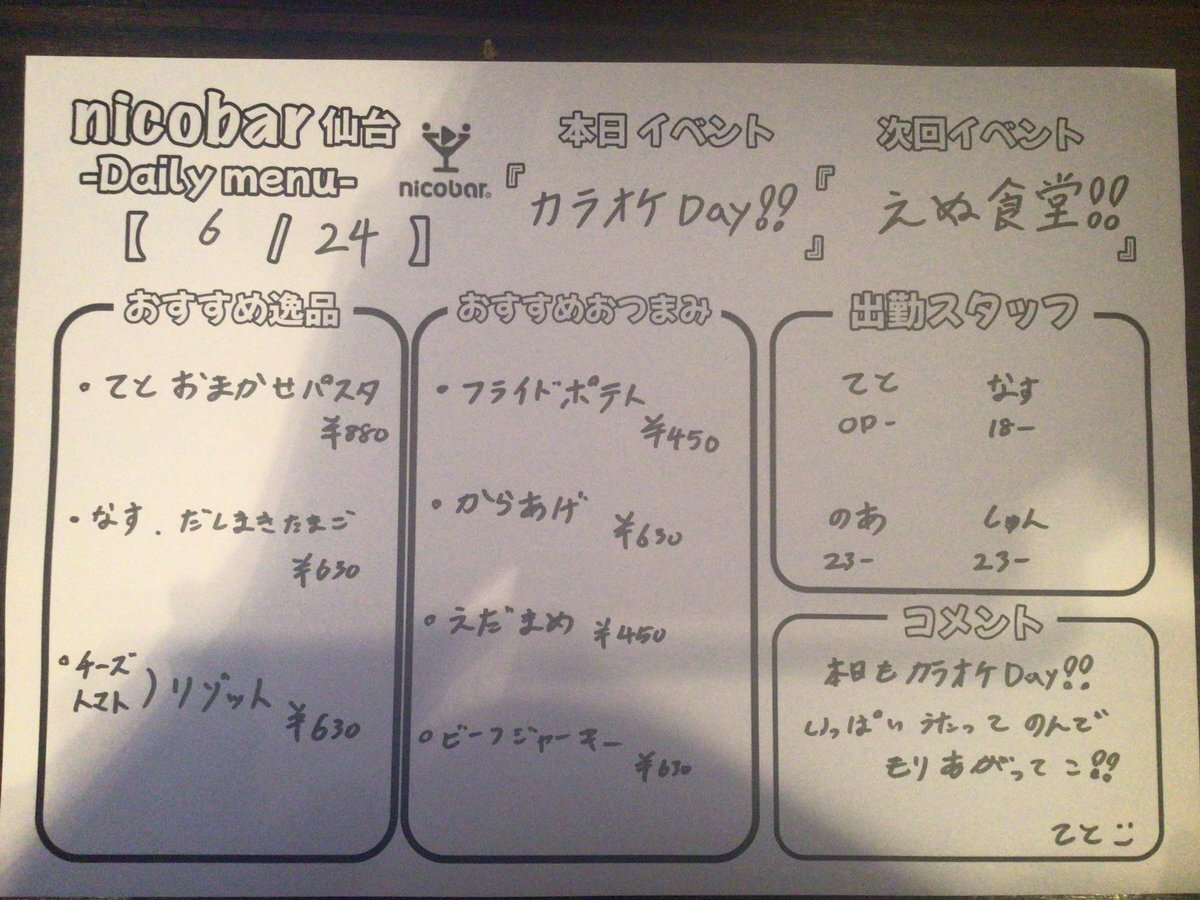 nicobar 仙台
-Daily menu-
【 6 / 24 】
nicobar®
本日 イベント
『カラオケDay!!』
次回イベント
『えぬ食堂!!』
おすすめ逸品
・てと おまかせパスタ
¥880
・なす.だしまきたまご
¥630
・チーズ
トマト ) リゾット
¥630
おすすめおつまみ
・フライドポテト
¥450
・からあげ
¥630
・えだまめ ¥450
・ビーフジャーキー
¥630
出勤スタッフ
てと なす
OP- 18-
のあ しゅん
23- 23-
コメント
本日もカラオケDay!!
いっぱい うたって のんで
もりあがってこ!!
てと:)